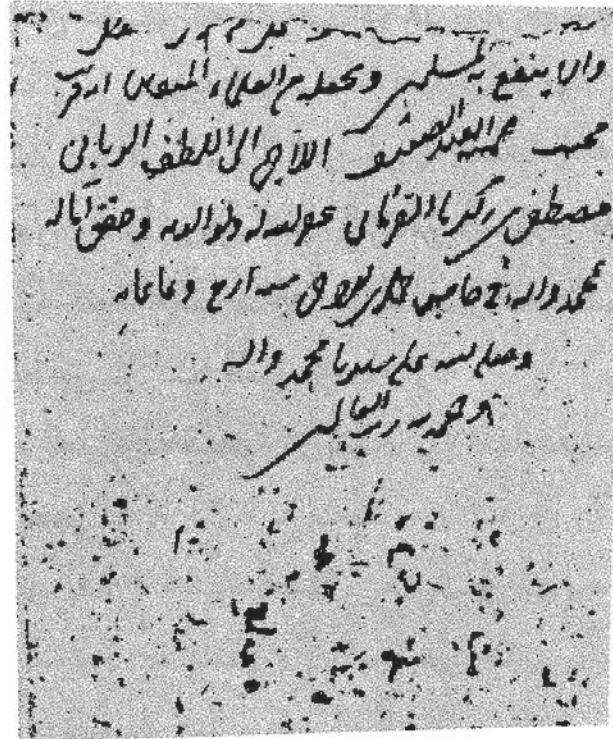 وان ينفع به المسلمين ويجعله من العلماء المتقين انه قريب
مجيب العبد الضعيف الراجى الى اللطف الربانى
مصطفى بن زكريا القرمانى غفر الله له ولوالديه وحقق آماله
بمحمد واله فى خامس جمادى سنة اربع وثمانمايه
وصلى الله على سيدنا محمد واله
والحمد لله رب العالمين